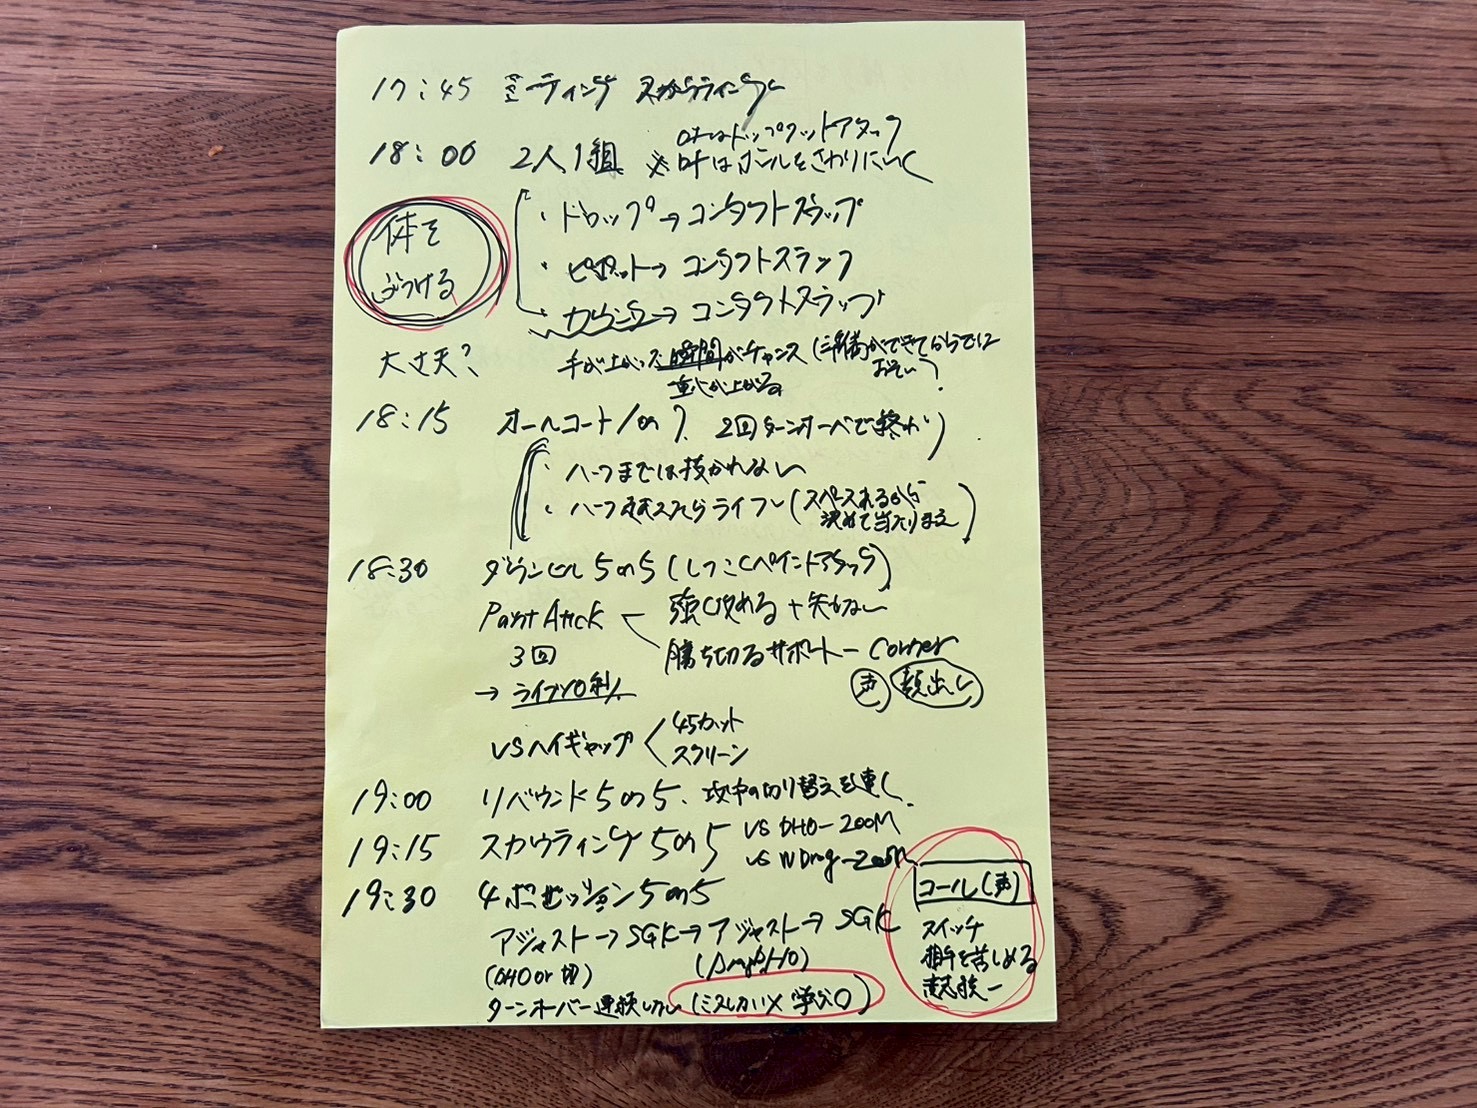 17:45 ミーティング スカウティング
18:00 2人1組 ※ OFはドップカットアタック
DFはボールをさわりにいく
体を
ぶつける
・ドロップ→コンタクトストップ
・ピボット→コンタクトストップ
カウンター→コンタクトストップ
大丈夫?
手が上がった瞬間がチャンス(準備ができてからでは
おそい)
重心が上がる
18:15 オールコート1on1. 2回ターンオーバーで終わり
・ハーフまでは抜かれない
・ハーフ越えたらライブ(スペースあるから
決めて当たりまえ)
18:30 ダウンヒル5on5(しつこくペイントアタック)
Paint Attck 強く攻める+失わない
3回 勝ち切るサポート-Corner
声 顔出し
→ライブ
VSハイギャップ 45カット
スクリーン
19:00 リバウンド5on5. 攻守の切り替えを速く
19:15 スカウティング5on5 VS DHO-ZOOM
VS ZOOM
19:30 4ポゼッション5on5
アジャスト→SGK→アジャスト→SGK
(DHO or
ターンオーバー連続しない(ミスしない× 学ぶ○)
コール(声)
スイッチ
相手を苦しめる
意志統一